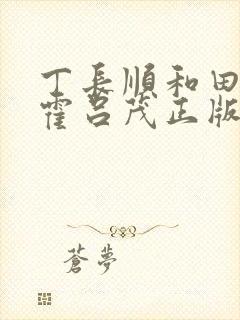 丁長順和田
霍呂茂正版
蒼夢